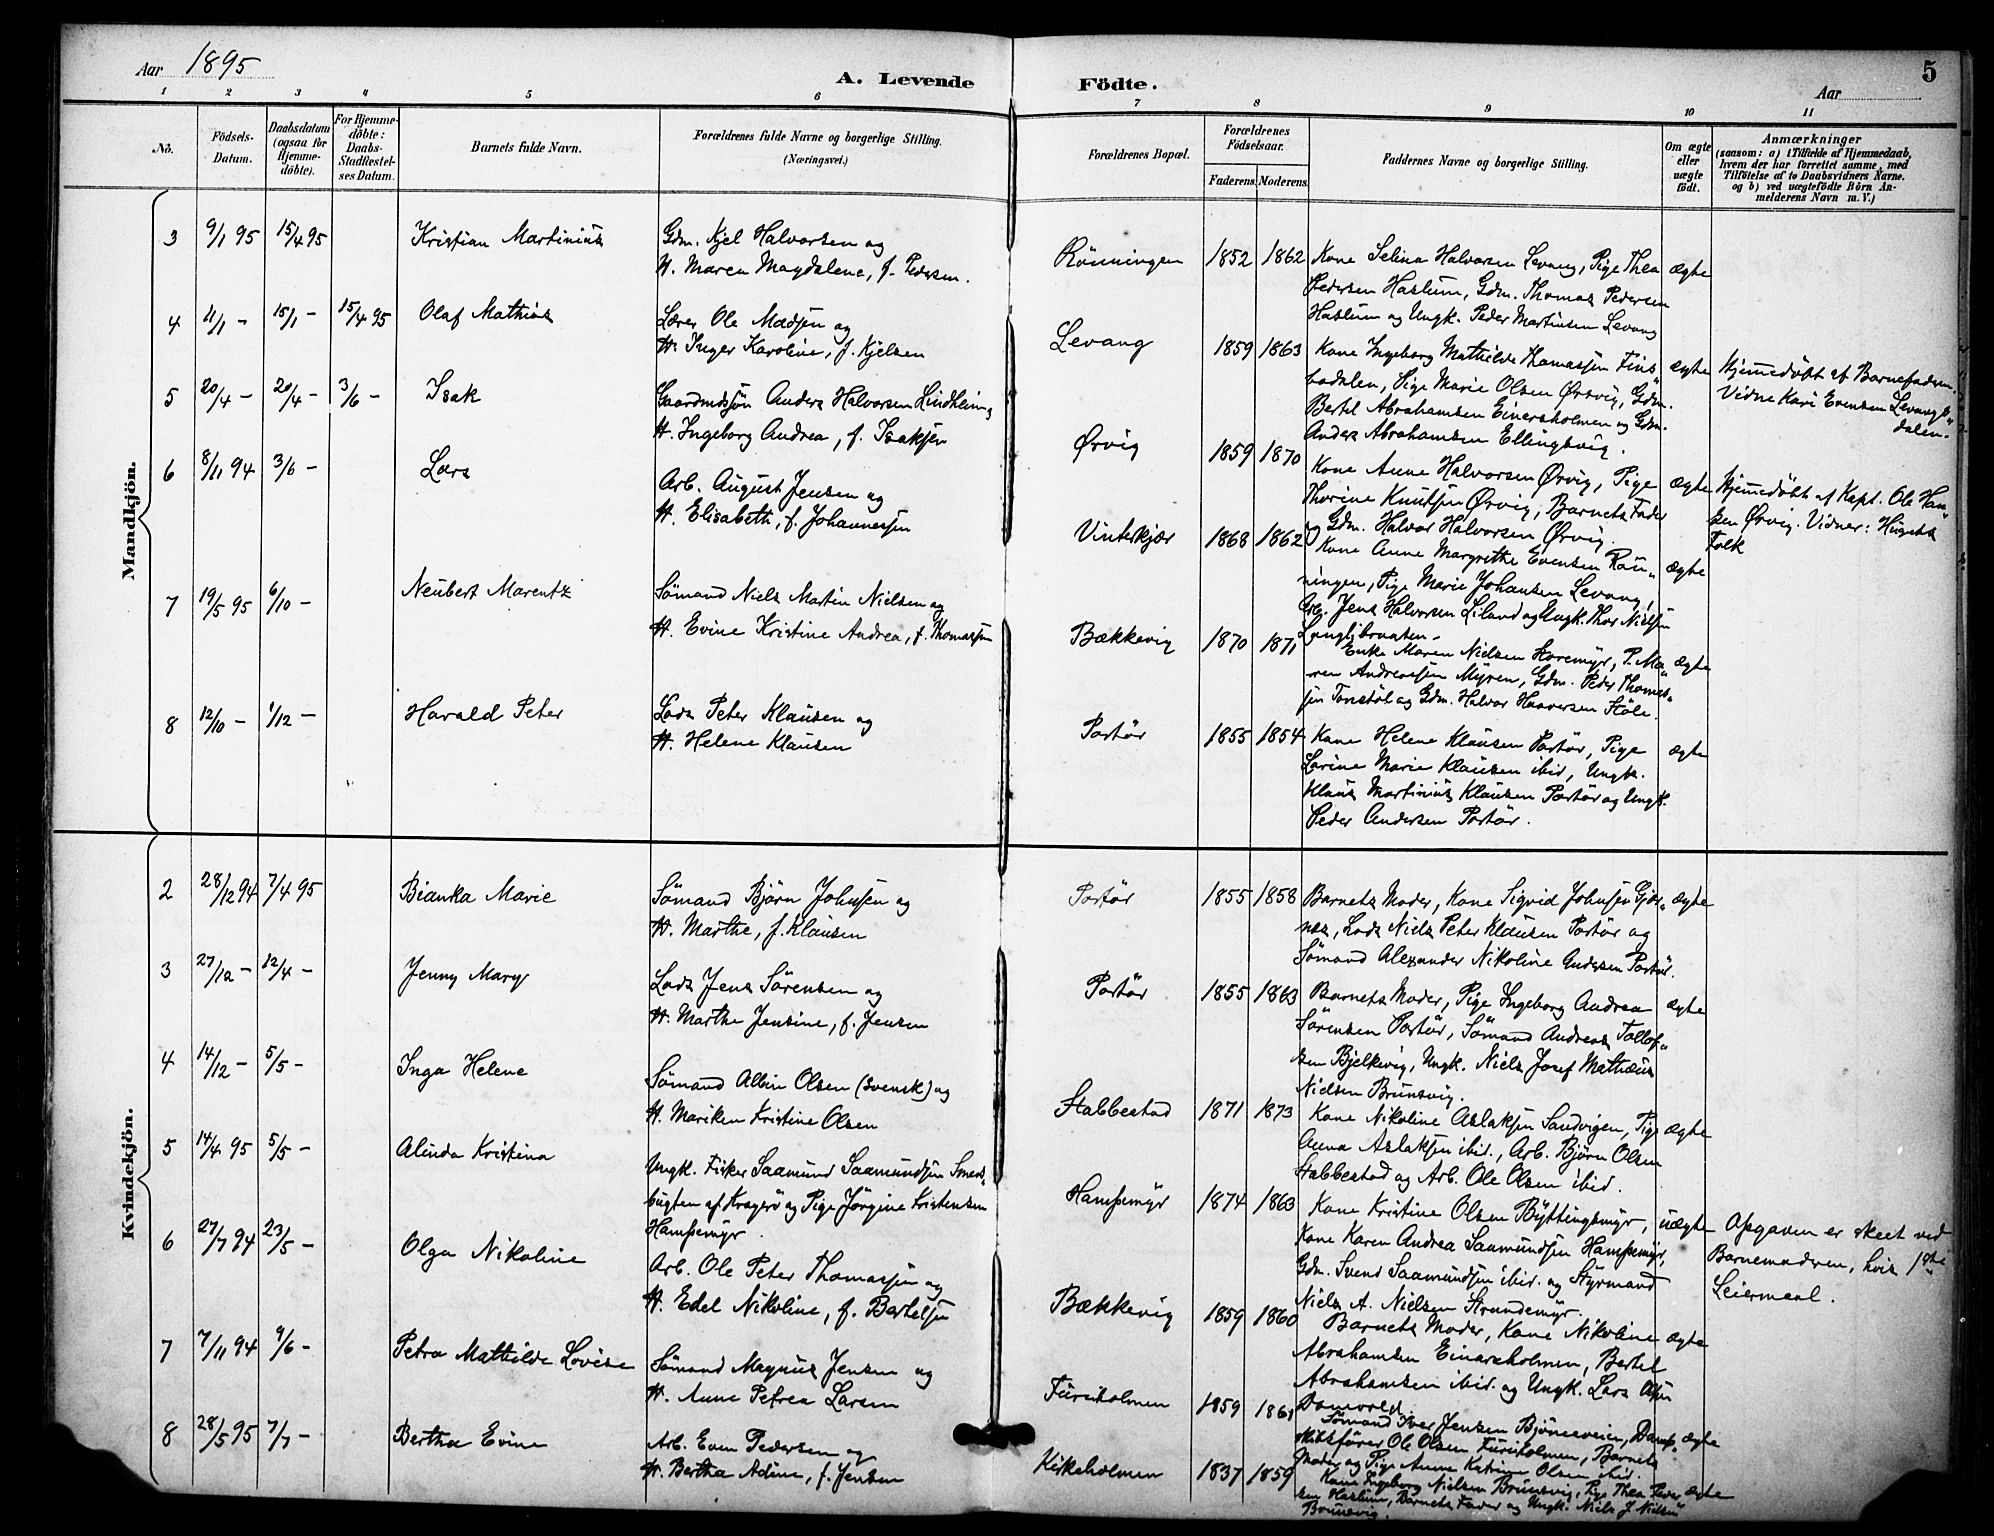 Aar 1895
A. Levende Födte.
5
Aar
1 2 3 4 5 6 7 8 9 10 11
No.
Födsels-
Datum.
Daabsdatum
(ogsaa for
Hjemme-
döbte).
For Hjemme-
döbte:
Daabs-
Stadfæstel-
ses Datum.
Barnets fulde Navn.
Forældrenes fulde Navne og borgerlige Stilling.
(Næringsvei.)
Forældrenes Bopæl.
Forældrenes
Födselsaar.
Faderens. Moderens.
Faddernes Navne og borgerlige Stilling.
Om ægte
eller
uægte
födt.
Anmærkninger
(saasom: a) i Tilfælde af Hjemmedaab,
hvem der har forrettet samme, med
Tilföielse af to Daabsvidners Navne.
og b) ved uægtefödte Börn An-
melderens Navn m. V.)
Mandkjön.
3 9/1 95 15/4 95 Kristian Martinius
Gdm. Kjel Halvorsen og
H. Maren Magdalene, f. Pedersen.
Rönningen 1852 1862
Kone Selina Halvorsen Levang, Pige Thea
Pedersen Haslum, Gdm. Thomas Pedersen
Haslum og Ungk. Peder Martinsen Levang
ægte
4 11/1 - 15/1 - 15/4 95 Olaf Mathias
Lærer Ole Madsen og
H. Inger Karoline, f. Kjelsen
Levang 1859 1863
Kone Ingeborg Mathilde Thomassen Fins„
bodalen, Pige Marie Olsen Ørvig, Gdm.
Bertel Abrahamsen Einersholmen og Gdm.
Anders Abrahamsen Ellingsvig.
ægte
Hjemmedöbt af Barnefaderen.
Vidne Kari Evensen Levangs„
dalen.
5 20/4 - 20/4 - 3/6 - Isak
Gaardmdsön Anders Halvorsen Lindheim og
H. Ingeborg Andrea, f. Isaksen
Ørvig 1859 1870
Kone Anne Halvorsen Ørvig, Pige
Thorine Knutsen Ørvig, Barnets Fader
og Gdm. Halvor Halvorsen Ørvig.
ægte
Hjemmedöbt af Kapt. Ole Han„
sen Ørvig. Vidner: Husets
Folk
6 8/11 94 3/6 - Lars
Arb. August Jensen og
H. Elisabeth, f. Johannessen
Vinterkjær 1868 1862
Kone Anne Margrethe Evensen Rön„
ningen, Pige Marie Johansen Levang,
Arb. Jens Halvorsen Liland og Ungk. Thor Nielsen
Langlibraaten.
ægte
7 19/5 95 6/10 - Neubert Marentz
Sømand Niels Martin Nielsen og
H. Evine Kristine Andrea, f. Thomassen
Bækkevig 1870 1871
Enke Maren Nielsen Storemyr, P. Ma„
ren Andreassen Myren, Gdm. Peder Thomas„
sen Tonstöl og Gdm. Halvor Haaversen Stöle.
ægte
8 12/10 - 1/12 - Harald Peter
Lods Peter Klausen og
H. Helene Klausen
Portør 1855 1854
Kone Helene Klausen Portør, Pige
Larine Marie Klausen ibid, Ungk.
Klaus Martinius Klausen Portør og Ungk.
Peder Andersen Portør.
ægte
Kvindekjön.
2 28/12 94 7/4 95 Bianka Marie
Sømand Bjørn Johnsen og
H. Marthe, f. Klausen
Portør 1855 1858
Barnets Moder, Kone Sigrid Johnsen Gjær„
nes, Lods Niels Peter Klausen Portør og
Sømand Alexander Nikoline Andersen Portør.
ægte
3 27/12 - 12/4 - Jenny Mary
Lods Jens Sørensen og
H. Marthe Jensine, f. Jensen
Portør 1855 1863
Barnets Moder, Pige Ingeborg Andrea
Sørensen Portør, Sømand Andreas Tollof„
sen Bjelkevig, Ungk. Niels Josef Mathæus
Nielsen Brunsvig.
ægte
4 14/12 - 5/5 - Inga Helene
Sømand Albin Olsen (svensk) og
H. Mariken Kristine Olsen
Stabbestad 1871 1873
Kone Nikoline Aslaksen Sandvigen, Pige
Anna Aslaksen ibid., Arb. Bjørn Olsen
Stabbestad og Arb. Ole Olsen ibid.
ægte
5 14/4 95 5/5 - Alinda Kristina
Ungk. Fisker Saamund Saamundsen Smeds„
bugten af Kragerø og Pige Jørgine Kristensen
Hampemyr.
Hampemyr 1874 1863
Kone Kristine Olsen Byttingsmyr,
Kone Karen Andrea Saamundsen Hampemyr,
Gdm. Svend Saamundsen ibid. og Styrmand
Niels A. Nielsen Strandemyr.
uægte
Opgaven er skeet ved
Barnemoderen, hvis 1ste
Leiermaal.
6 27/7 94 23/5 - Olga Nikoline
Arb. Ole Peter Thomassen og
H. Edel Nikoline, f. Bertelsen
Bækkevig 1859 1860
Barnets Moder, Kone Nikoline
Abrahamsen Einarsholmen, Bertel
Abrahamsen ibid. og Ungk. Lars Olsen
ægte
7 7/11 94 9/6 - Petra Mathilde Lovise
Sømand Magnus Jensen og
H. Anne Petrea Larsen
Furuholmen 1859 1861
Sømand Iver Jensen Bjönneveien, Damp„
skibsfører Ole Olsen Furuholmen, Barnets
Moder og Pige Anne Katrine Olsen ibid.
ægte
8 28/5 95 7/7 - Bertha Evine
Arb. Even Pedersen og
H. Bertha Adine, f. Jensen
Kirkeholmen 1837 1859
Kone Ingeborg Nielsen Brunsvig, Pige Thea Peder„
sen Haslum, Barnets Fader og Ungk. Niels J. Nielsen
Brunsvig.
ægte